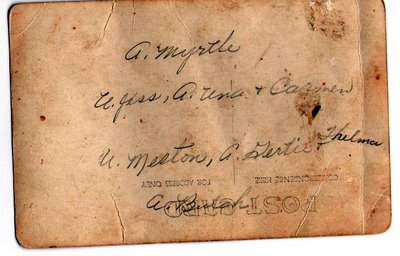 A. Myrtle
U. Jess, A. Una & Carmen
U. Meston, A. Gertie & Thelma
A. Beulah
POST CARD
CORRESPONDENCE HERE
FOR ADDRESS ONLY